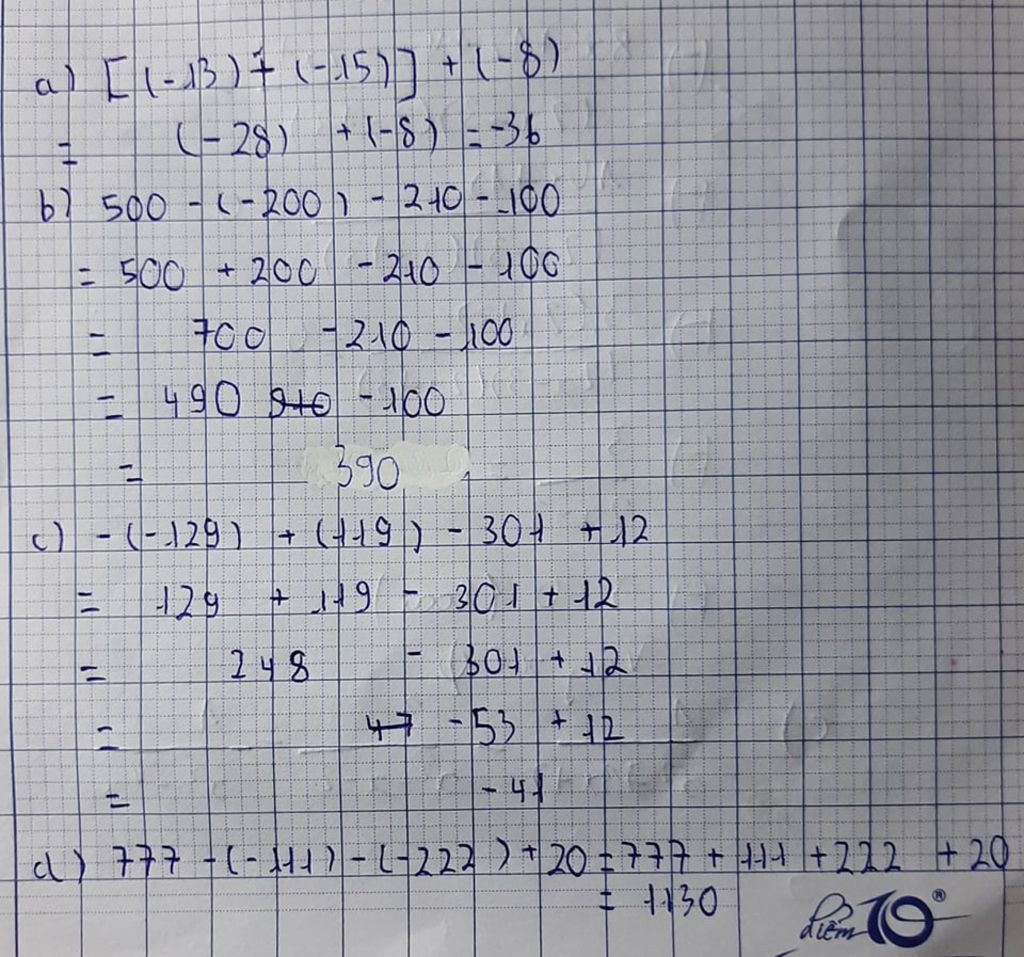 a) [(-13) + (-15)] + (-8)
= (-28) + (-8) = -36
b) 500 - (-200) - 210 - 100
= 500 + 200 - 210 - 100
= 700 - 210 - 100
= 490 - 100
= 390
c) - (-129) + (119) - 301 + 12
= 129 + 119 - 301 + 12
= 248 - 301 + 12
= -53 + 12
= -41
d) 777 - (-111) - (-222) + 20 = 777 + 111 + 222 + 20
= 1130
Điểm 10®